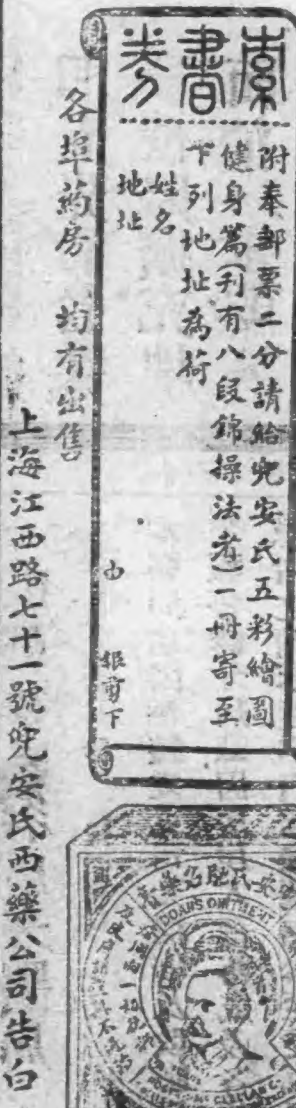 索書券
附奉郵票二分請給兜安氏五彩繪圖
健身篇(刋有八段錦操法者)一冊寄至
下列地址為荷
姓名
地址
由　報剪下
各埠藥房　均有出售
上海江西路七十一號兜安氏西藥公司告白
DOAN'S OINTMENT